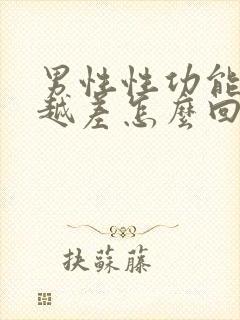 男性性功能
越差怎麼回
抉蘇藤